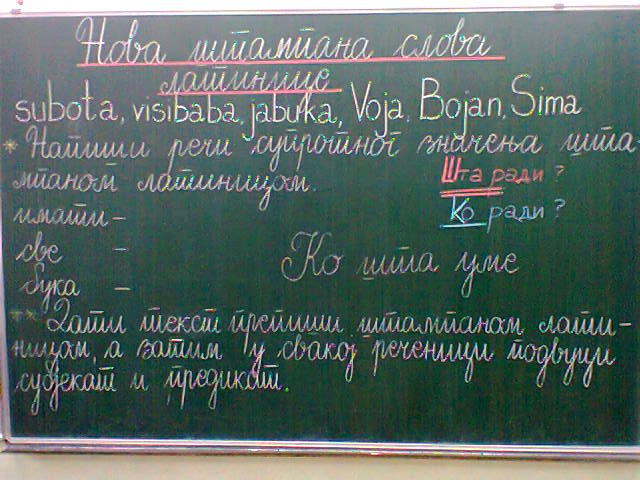 Нова штампана слова
латинице
subota, visibaba, jabuka, Voja, Bojan, Sima
* Напиши речи супротног значења шта-
мпаном латиницом.
Шта ради?
имати –
Ко ради?
све –
Ко шта уме
бука –
** Дати текст препиши штампаном лати-
ницом, а затим у свакој реченици подвуци
субјекат и предикат.